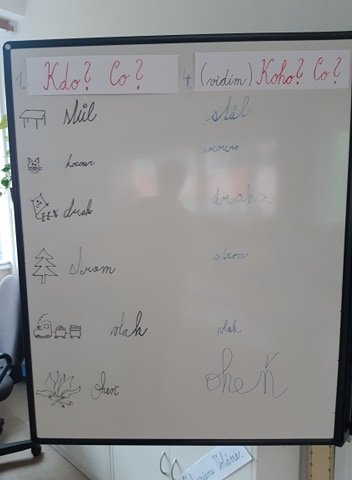 1. Kdo? Co? 4. (vidím) Koho? Co?
stůl stůl
kocour
drak draka
strom strom
vlak vlak
oheň oheň